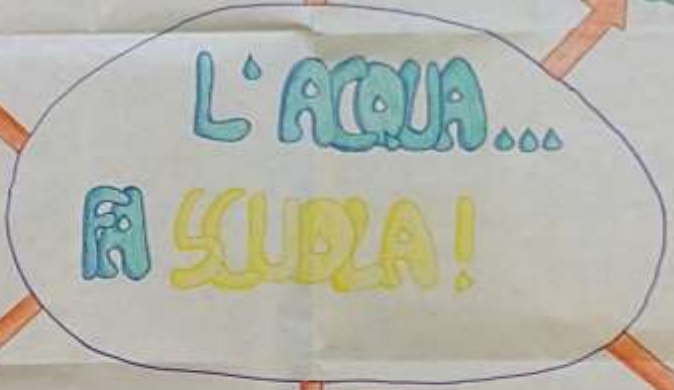 L'ACQUA...
FA SCUOLA!